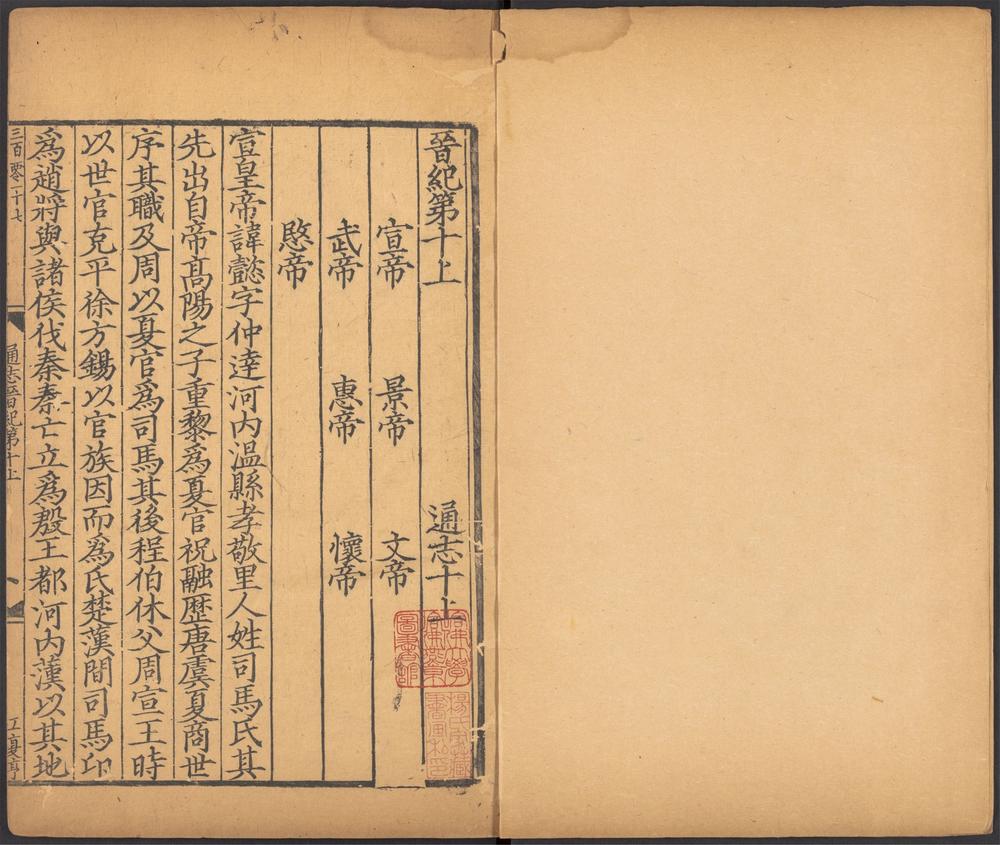 晉紀第十上　通志十上
宣帝　景帝　文帝
武帝　惠帝　懷帝
愍帝
宣皇帝諱懿字仲達河内溫縣孝敬里人姓司馬氏其
先出自帝髙陽之子重黎為夏官祝融歴唐虞夏商世
序其職及周以夏官爲司馬其後程伯休父周宣王時
以世官克平徐方錫以官族因而爲氏楚漢間司馬卬
爲趙將與諸侯伐秦秦亡立爲殷王都河内漢以其地
三百零十七
通志晉紀第十上
哈佛大學
哈佛燕京
圖書館